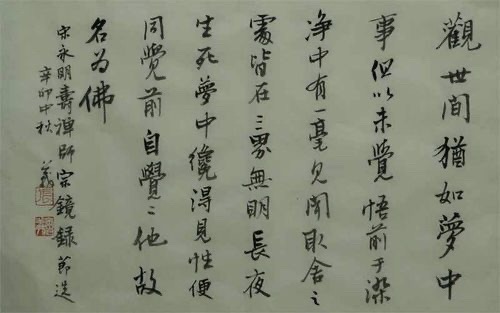 觀世間猶如夢中
事但以未覺悟前于染
淨中有一毫見聞取舍之
處皆在三界無明長夜
生死夢中纔得見性便
同覺前自覺〻他故
名為佛
宋永明壽禪師宗鏡錄節選
辛卯中秋 義